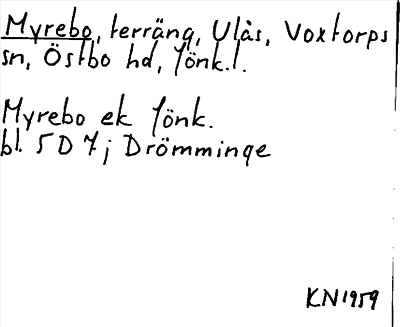 Myrebo, terräng, Ulås, Voxtorps
sn, Östbo hd, Jönk.l.
Myrebo ek Jönk.
bl. 5D 7j Drömminge
KN 1959